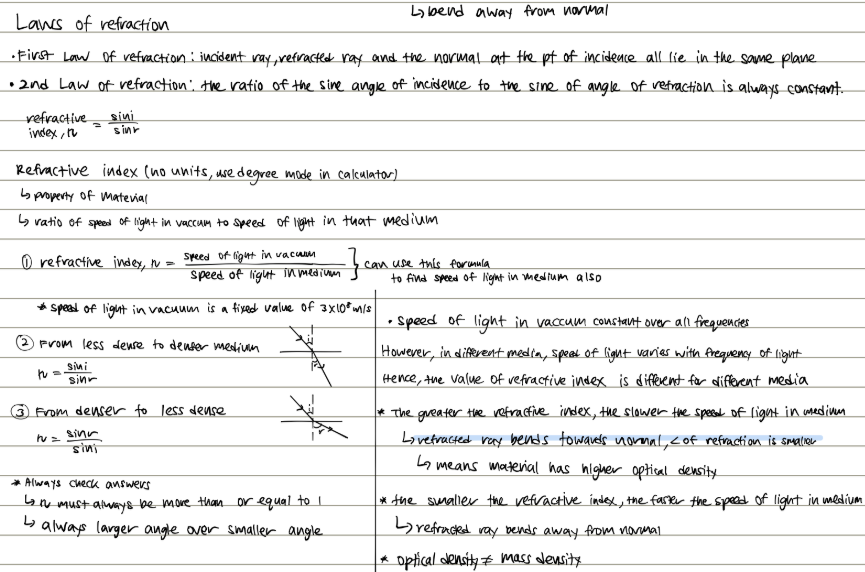 ↳ bend away from normal
Laws of refraction
• First Law of refraction : incident ray, refracted ray and the normal at the pt of incidence all lie in the same plane
• 2nd Law of refraction : the ratio of the sine angle of incidence to the sine of angle of refraction is always constant.
refractive index, n = sini / sinr
Refractive index (no units, use degree mode in calculator)
↳ property of material
↳ ratio of speed of light in vaccum to speed of light in that medium
① refractive index, n = speed of light in vacuum / speed of light in medium } can use this formula
to find speed of light in medium also
* speed of light in vacuum is a fixed value of 3×10⁸ m/s
② From less dense to denser medium
i
r
n = sini / sinr
③ From denser to less dense
i
r
n = sinr / sini
* Always check answers
↳ n must always be more than or equal to 1
↳ always larger angle over smaller angle
• speed of light in vaccum constant over all frequencies
However, in different media, speed of light varies with frequency of light
Hence, the value of refractive index is different for different media
* The greater the refractive index, the slower the speed of light in medium
↳ refracted ray bends towards normal, ∠ of refraction is smaller
↳ means material has higher optical density
* the smaller the refractive index, the faster the speed of light in medium
↳ refracted ray bends away from normal
* optical density ≠ mass density